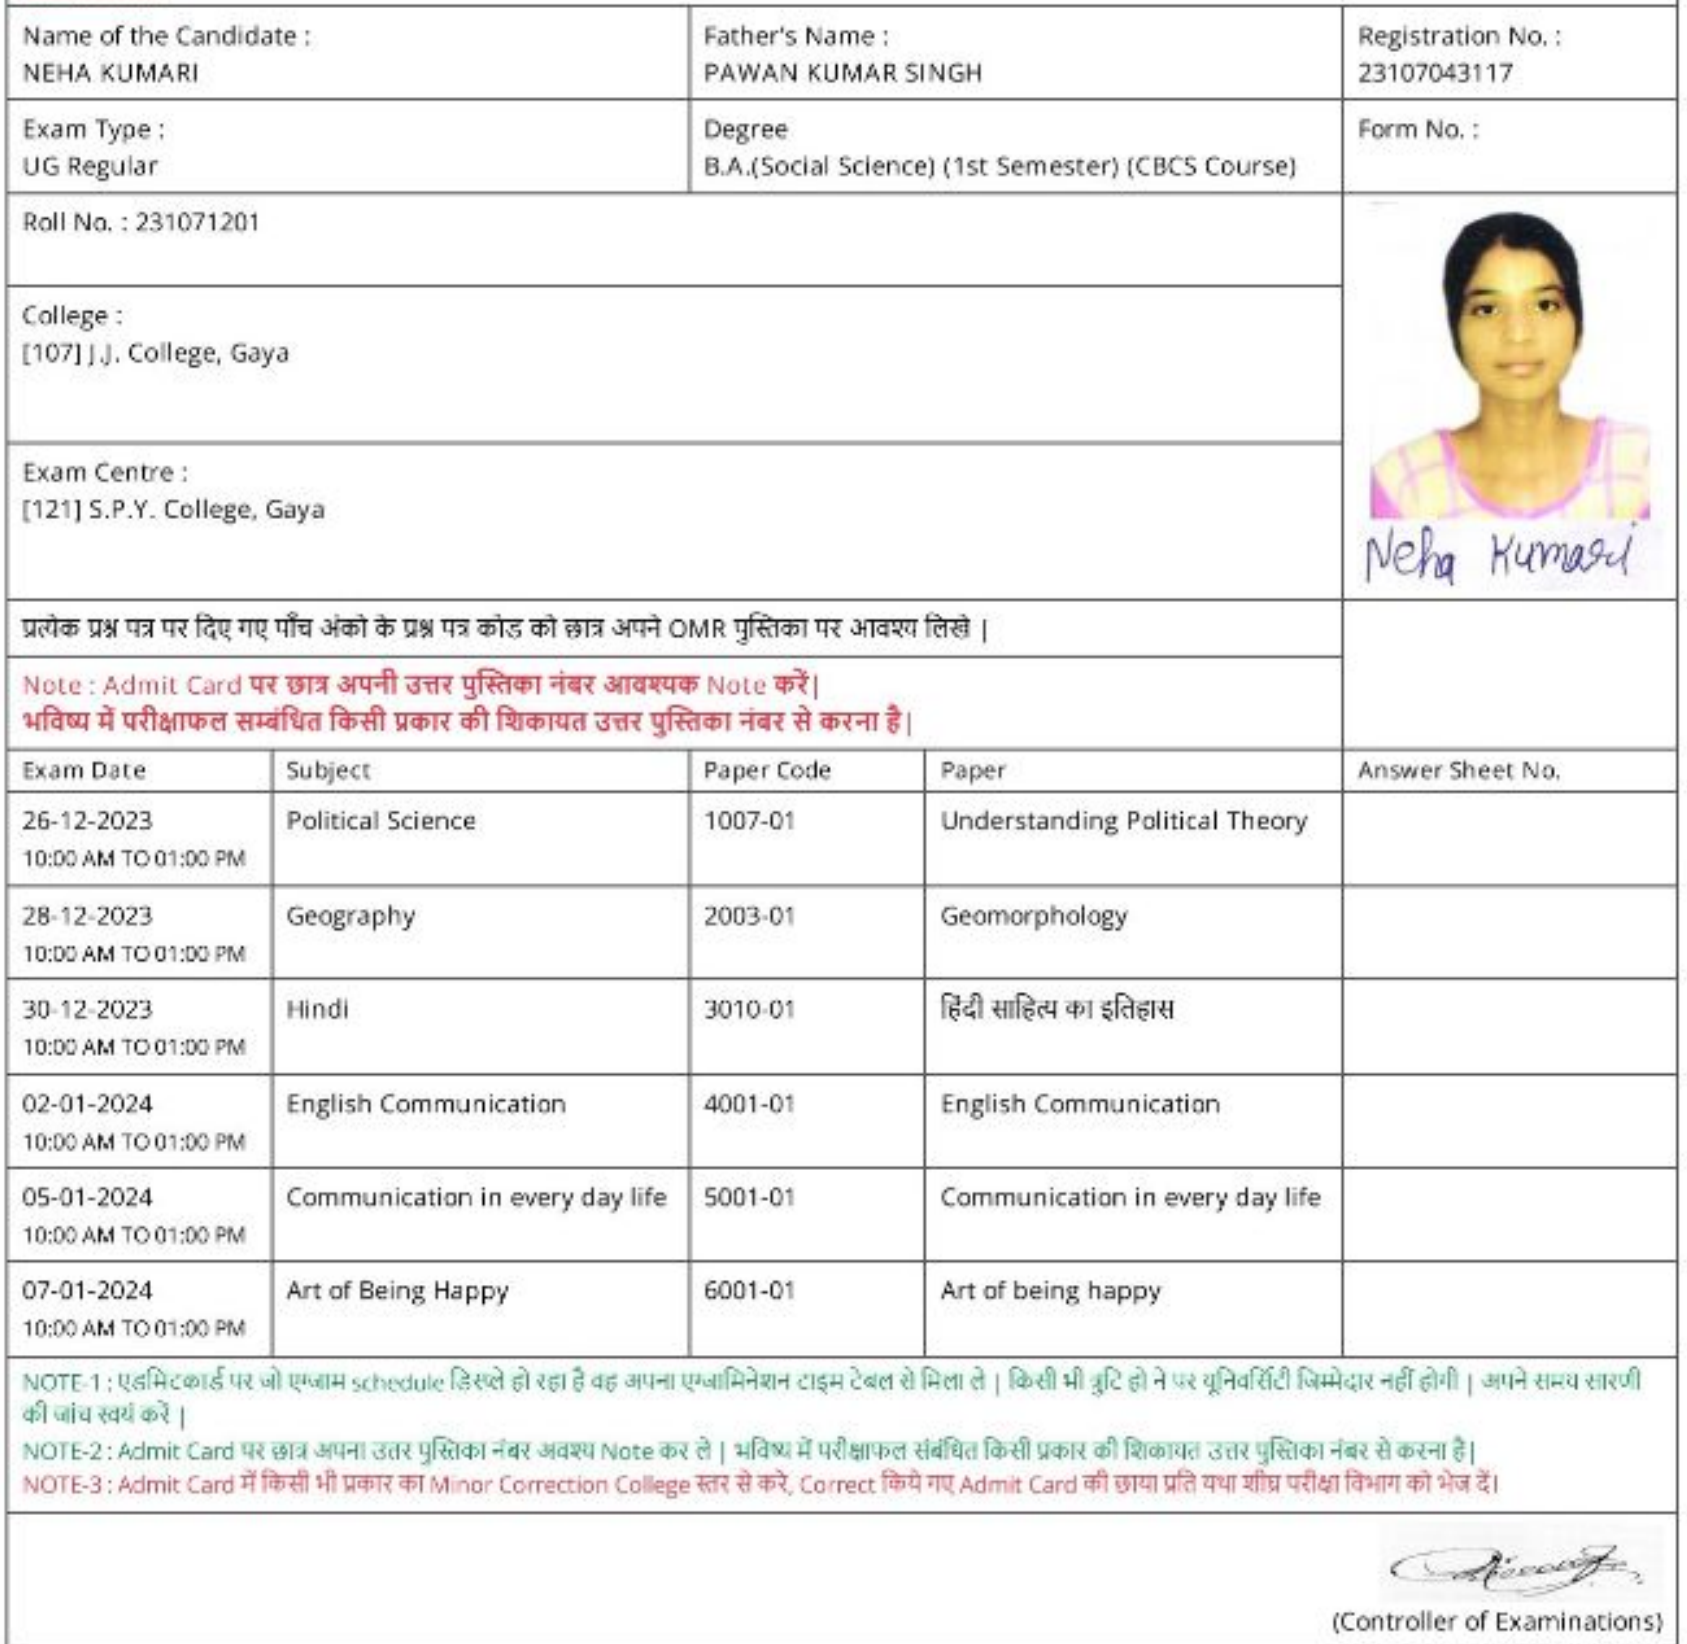 Name of the Candidate :
NEHA KUMARI
Father's Name :
PAWAN KUMAR SINGH
Registration No. :
23107043117
Exam Type :
UG Regular
Degree
B.A.(Social Science) (1st Semester) (CBCS Course)
Form No. :
Roll No. : 231071201
College :
[107] J.J. College, Gaya
Exam Centre :
[121] S.P.Y. College, Gaya
Neha Kumari
प्रत्येक प्रश्न पत्र पर दिए गए पाँच अंको के प्रश्न पत्र कोड को छात्र अपने OMR पुस्तिका पर आवश्य लिखे |
Note : Admit Card पर छात्र अपनी उत्तर पुस्तिका नंबर आवश्यक Note करें|
भविष्य में परीक्षाफल सम्बंधित किसी प्रकार की शिकायत उत्तर पुस्तिका नंबर से करना है|
Exam Date Subject Paper Code Paper Answer Sheet No.
26-12-2023 Political Science 1007-01 Understanding Political Theory
10:00 AM TO 01:00 PM
28-12-2023 Geography 2003-01 Geomorphology
10:00 AM TO 01:00 PM
30-12-2023 Hindi 3010-01 हिंदी साहित्य का इतिहास
10:00 AM TO 01:00 PM
02-01-2024 English Communication 4001-01 English Communication
10:00 AM TO 01:00 PM
05-01-2024 Communication in every day life 5001-01 Communication in every day life
10:00 AM TO 01:00 PM
07-01-2024 Art of Being Happy 6001-01 Art of being happy
10:00 AM TO 01:00 PM
NOTE-1 : एडमिटकार्ड पर जो एग्जाम schedule डिस्प्ले हो रहा है वह अपना एग्जामिनेशन टाइम टेबल से मिला ले | किसी भी त्रुटि हो ने पर यूनिवर्सिटी जिम्मेदार नहीं होगी | अपने समय सारणी
की जांच स्वयं करें |
NOTE-2 : Admit Card पर छात्र अपना उतर पुस्तिका नंबर अवश्य Note कर ले | भविष्य में परीक्षाफल संबंधित किसी प्रकार की शिकायत उत्तर पुस्तिका नंबर से करना है|
NOTE-3 : Admit Card में किसी भी प्रकार का Minor Correction College स्तर से करे, Correct किये गए Admit Card की छाया प्रति यथा शीघ्र परीक्षा विभाग को भेज दें।
(Controller of Examinations)